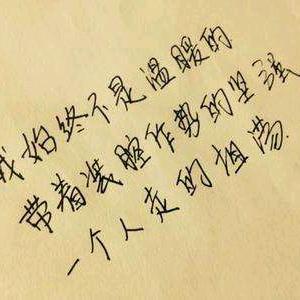 我始终不是温暖的
带着装腔作势的坚强
一个人走的坦荡.